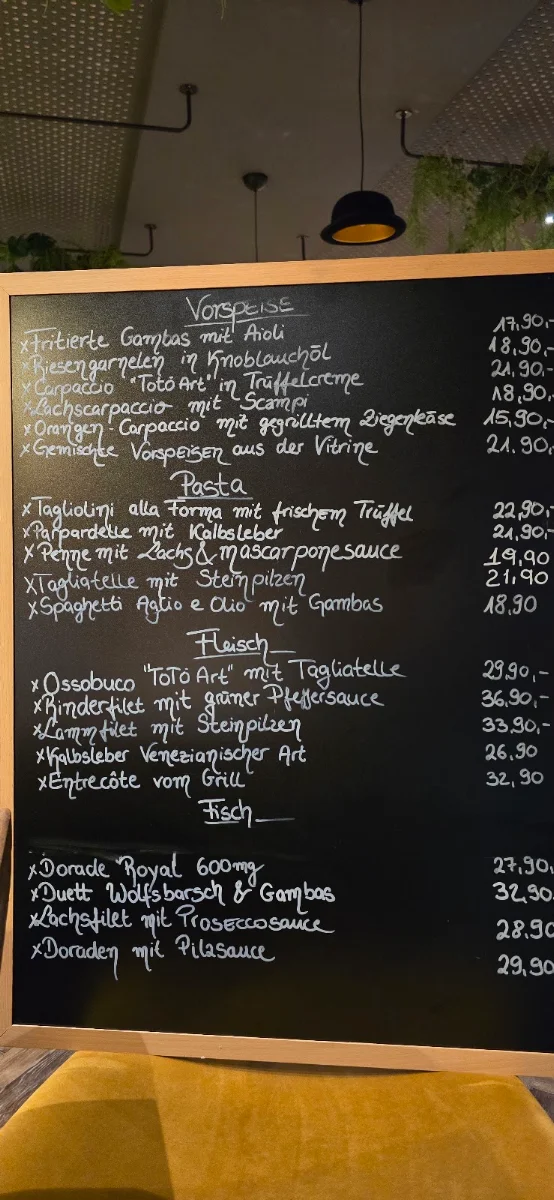 Vorspeise
x Fritierte Gambas mit Aioli 17,90,-
x Riesengarnelen in Knoblauchöl 18,90,-
x Carpaccio "Totó Art" in Trüffelcreme 21,90,-
x Lachscarpaccio mit Scampi 18,90,
x Orangen-Carpaccio mit gegrilltem Ziegenkäse 15,90,-
x Gemischte Vorspeisen aus der Vitrine 21.90,
Pasta
x Tagliolini alla Forma mit frischem Trüffel 22,90,-
x Parpardelle mit Kalbsleber 21,90,-
x Penne mit Lachs & mascarponesauce 19,90
x Tagliatelle mit Steinpilzen 21,90
x Spaghetti Aglio e Olio mit Gambas 18,90
Fleisch
x Ossobuco "Totó Art" mit Tagliatelle 29,90,-
x Rinderfilet mit grüner Pfeffersauce 36,90,-
x Lammfilet mit Steinpilzen 33,90,-
x Kalbsleber Venezianischer Art 26,90
x Entrecôte vom Grill 32,90
Fisch
x Dorade Royal 600mg 27,90,
x Duett Wolfsbarsch & Gambas 32,90
x Lachsfilet mit Proseccosauce 28,90
x Doraden mit Pilzsauce 29,90